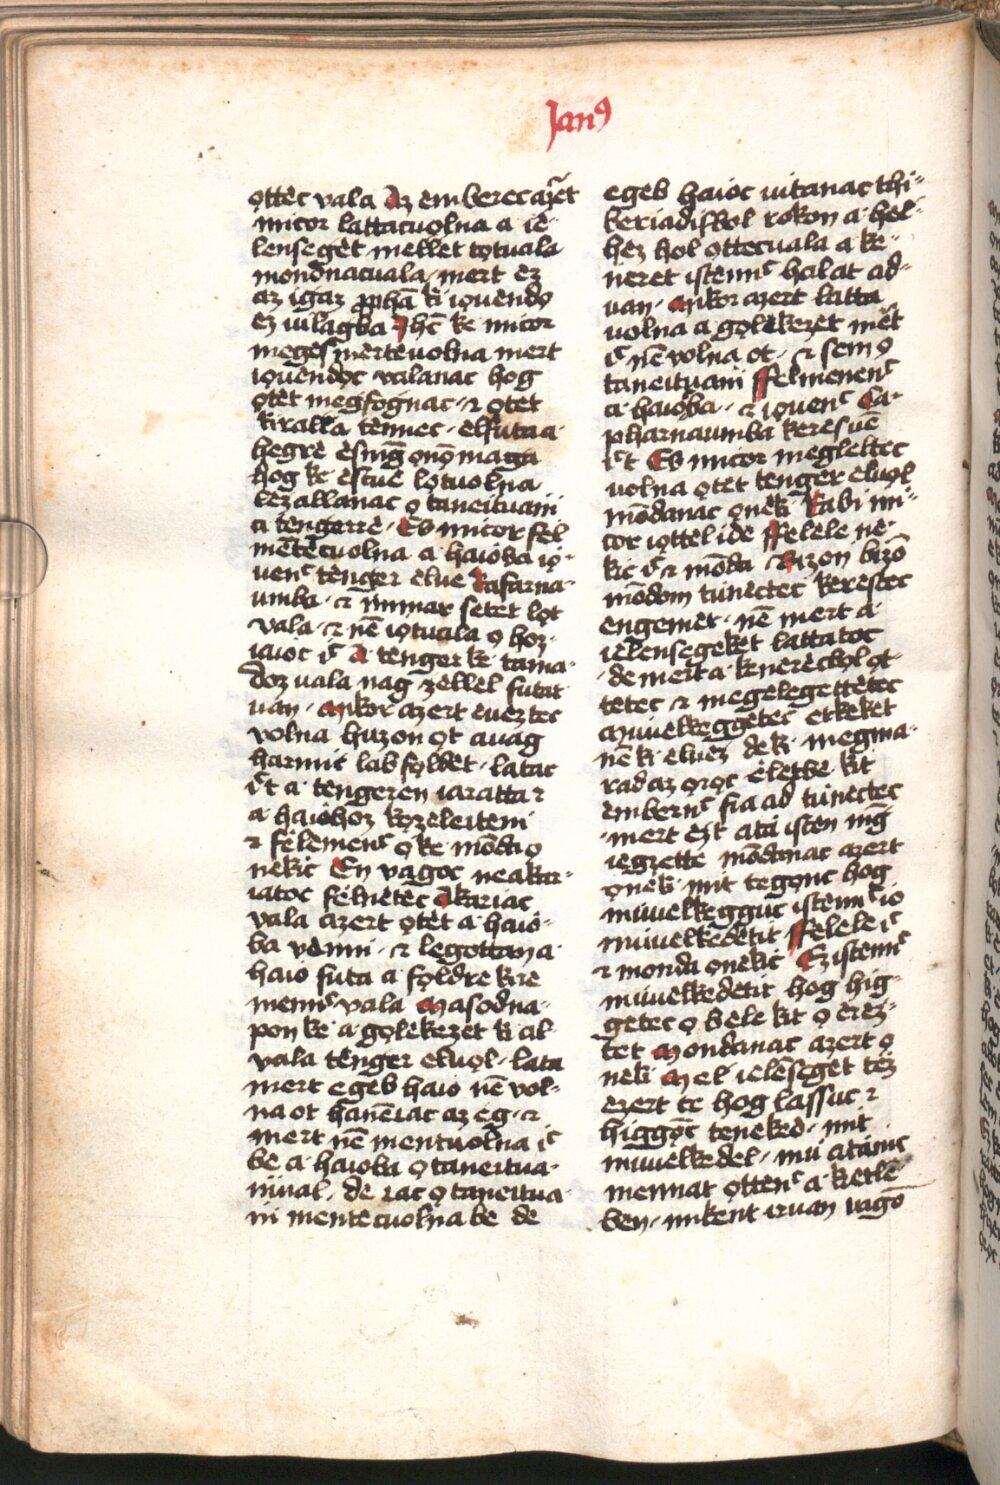 Jan9
ottec vala Az emberec aʒert
micor lattacuolna a ie-
lenseget mellet totuala
mondnacuala mert ez
az igaz ꝓphā ki iouendo
ez vilagba Jhc̄ ke micor
megeſmertevolna mert
iouendoc valanac hog
otet megfognac ⁊ otet
kiralla tennec elfuta a
hegre esmēg onōmaga
hog ke estue lotuolna
lezallanac o taneituani
a tengerre Es micor fel
mētecuolna a haioba io-
uenc tenger elue kafarna-
umba ⁊ immar setet lot
vala ⁊ nē iotuala o hoz-
iaioc ic A tenger ke tama-
doz vala nag zellel futat
uan Mikor azert eueztec
volna huzon ot auag
harmic lab foldet latac
ict a tengeren iaratta ⁊
a haiohoz kozeleiteni
⁊ felemenc o ke mōda o
nekic En vagoc ne akar-
iatoc felnetec Akariac
vala azert otet a haio-
ba venni ⁊ legottan a
haio futa a foldre kire
mennc vala Masodna-
pon ke a golekezet ki al
vala tenger eluol lata
mert egeb haio nē vol-
na ot hanēiac az eg ⁊
mert nē mentuolna ic
be a haioba o taneitua-
niual de iac o taneitua
ni mentecuolna be de
egeb haioc iutanac thi-
beriadisbol rokon a hel-
hez hol ottecuala a ke-
neret istennc halat ad-
uan Mikor azert latta
volna a golekezet mēt
ic nē volna ot ⁊ sem o
taneituani Felmenenc
a haioba ⁊ iouenc Ca-
pharnaumba keresuē
ict Es micor megleltec
volna otet tenger eluol
mōdanac onekī Rabi mi-
cor iottel ide Felele ne-
kic ic ⁊ mōda Bizon bizō
mōdom tunectec kerestec
engemet nē mert a
ielensegeket lattatoc
de mert a kenerecbol ot-
tetec ⁊ megelegettetec
Muuelkeggetec etkeket
nē ki eluez de ki megma-
rad az oroc eletbe kit
embernc fia ad tunectec
mert ezt ata isten mḡ
iegzette mōdanac azert
onek mit tegonc hog
muuelkegguc istennc io
muuelkedetit Felele ic
⁊ monda onekic Ez istennc
muuelkedetit hog hig-
getec o bele kit o erez-
tet Mondanac azert o
neki Mel ielēseget tez
ezert te hog lassuc ⁊
higgōc teneked mit
muuelkedel mu atanc
mennat ottenc a kietlē
ben mikent iruan vagō